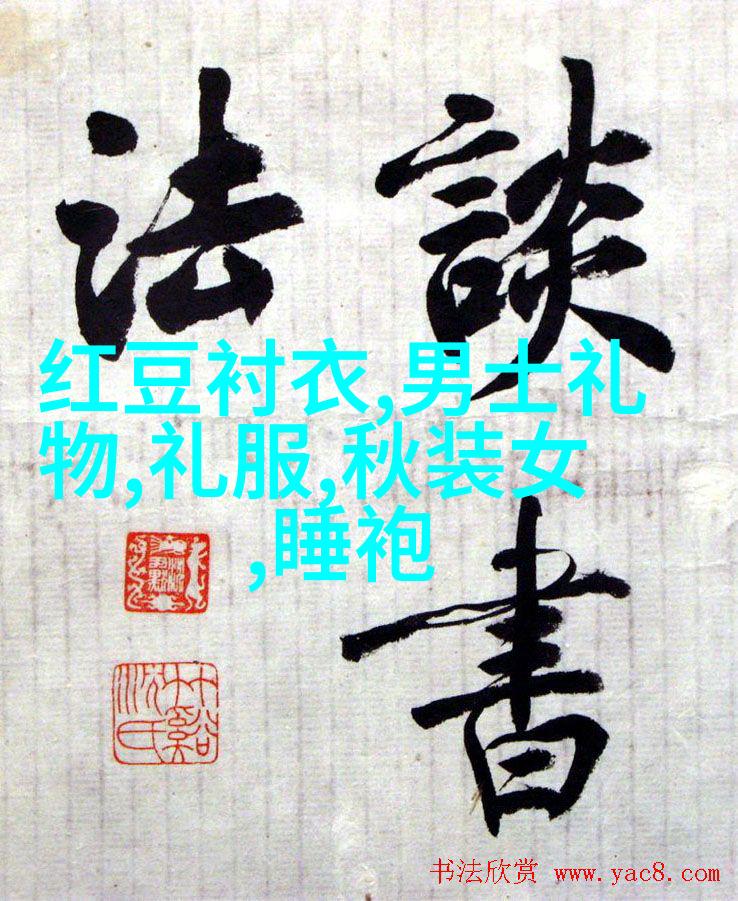 談書
法
红豆衬衣,男士礼
物,礼服,秋装女
,睡袍
书法欣赏 www.yac8.com